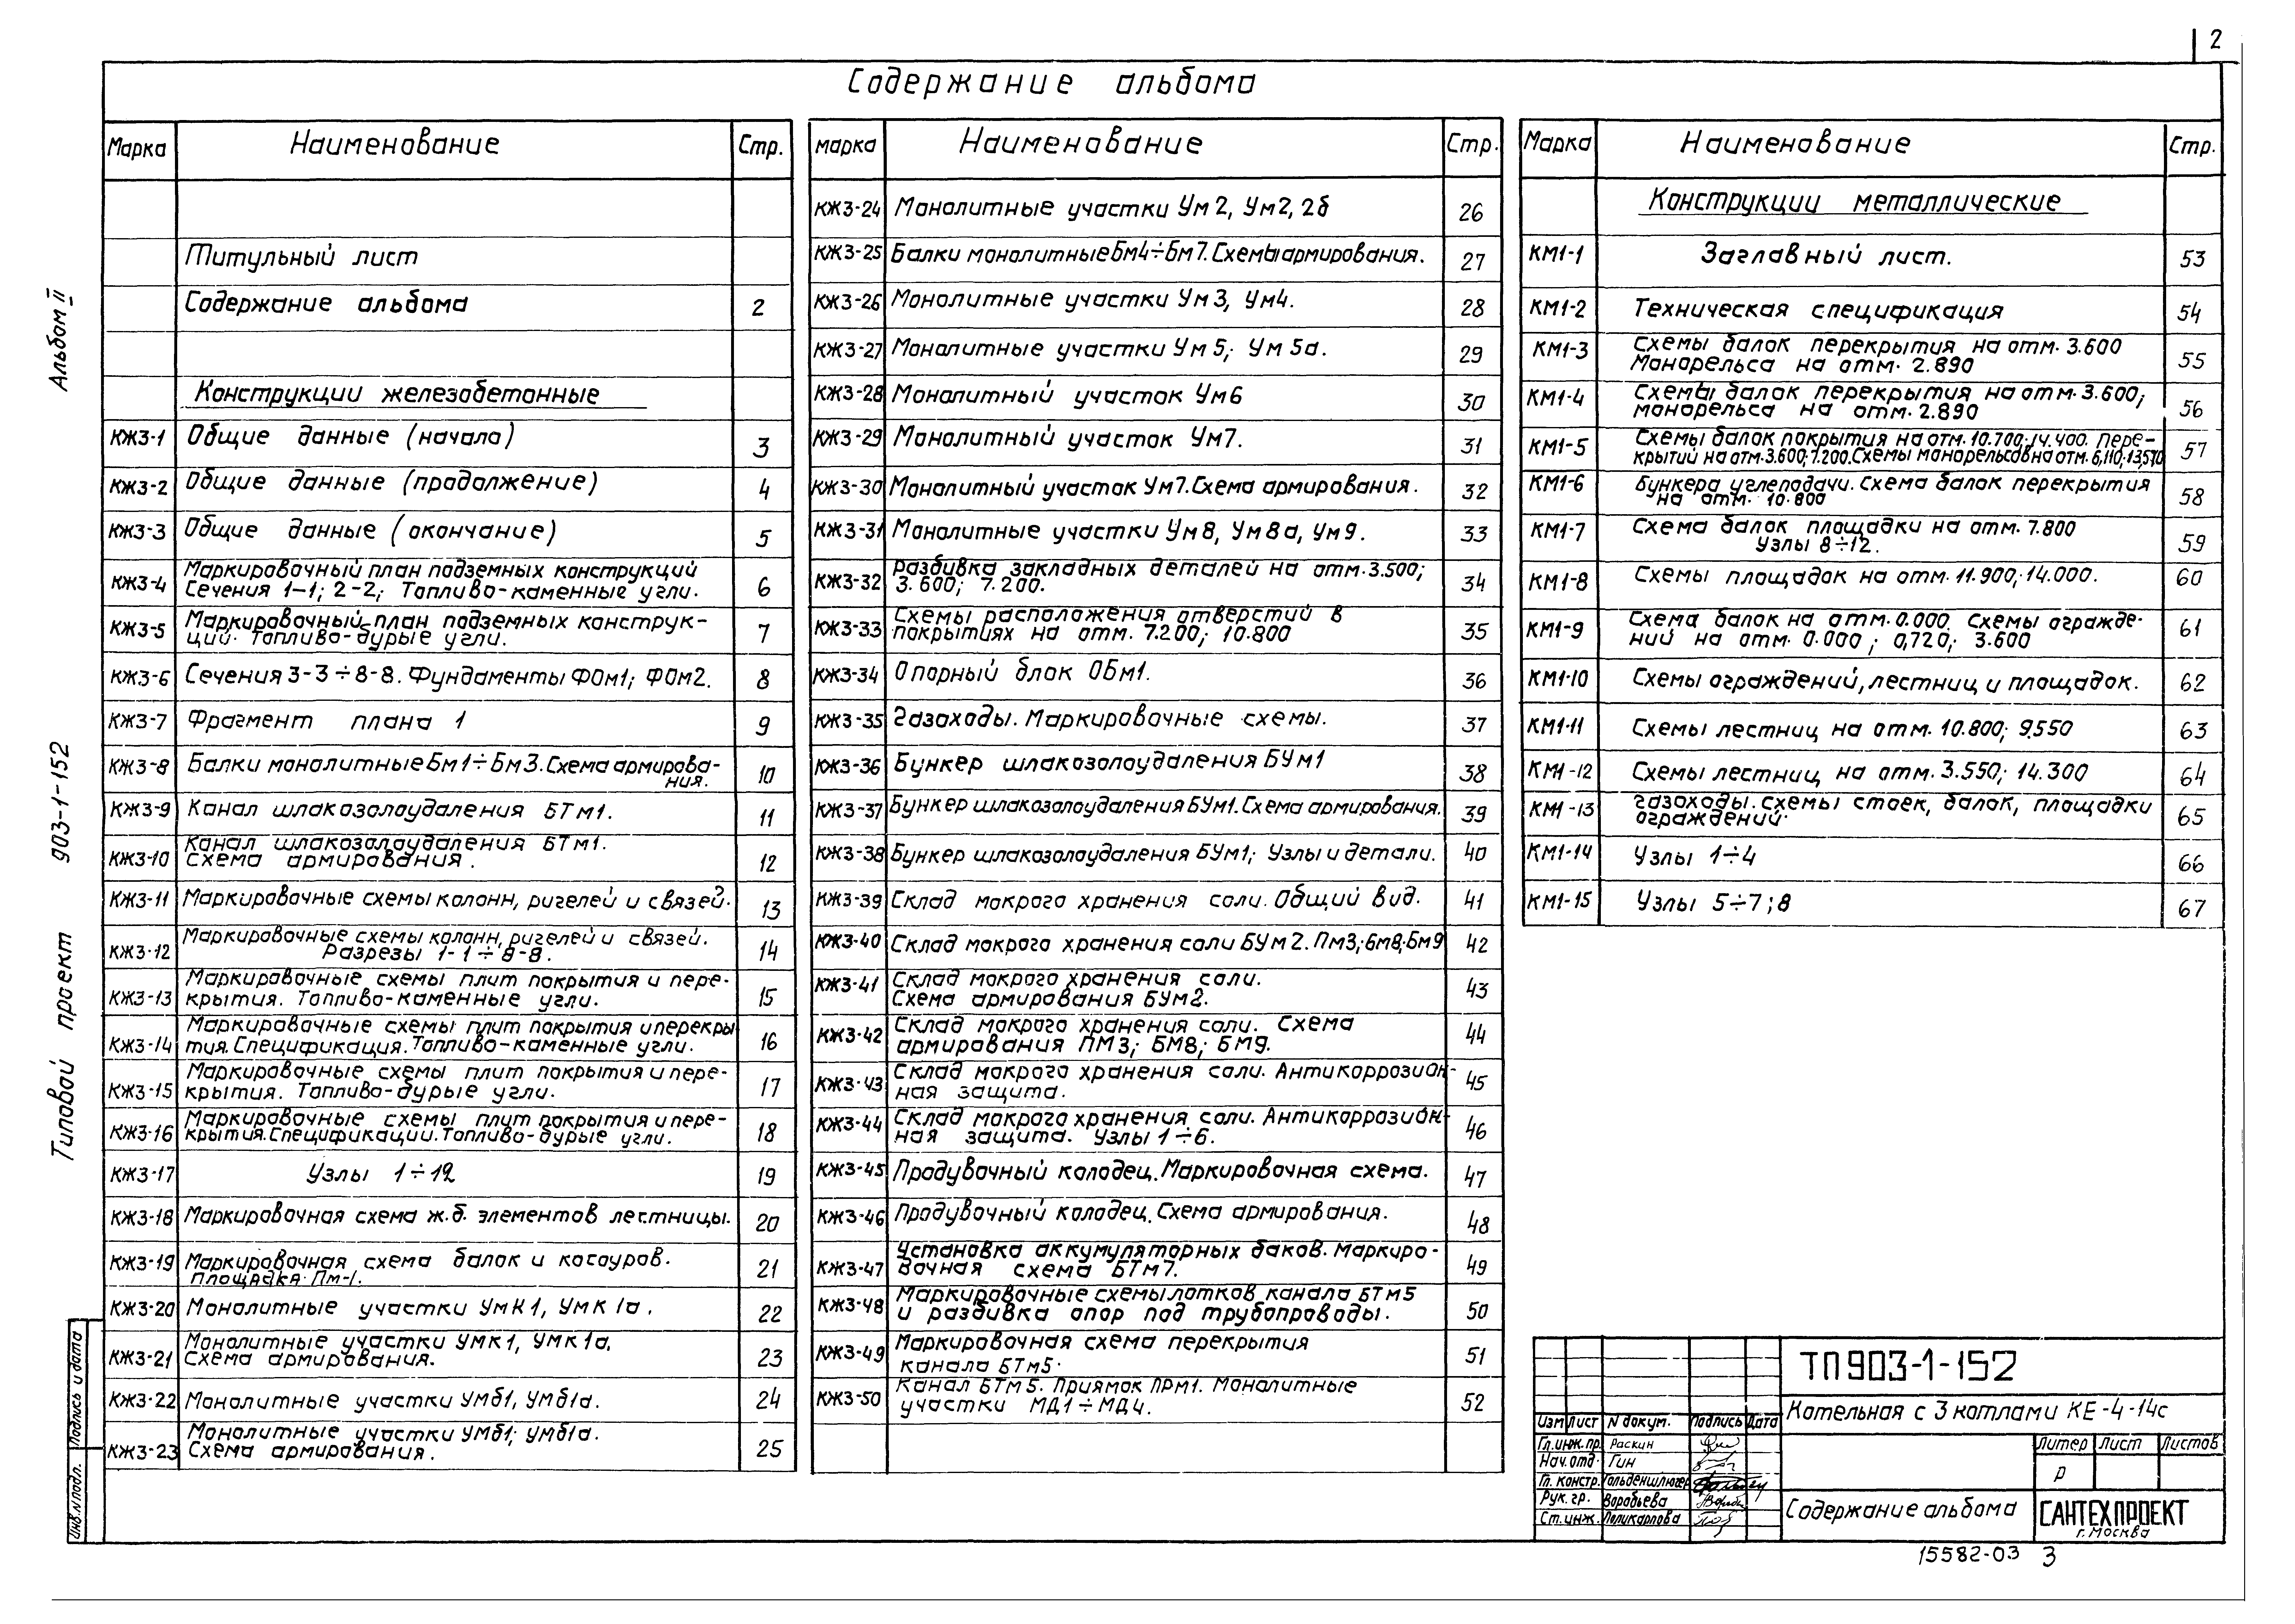 2
Содержание альбома
Марка Наименование Стр.
Титульный лист
Содержание альбома 2
Конструкции железобетонные
КЖ3-1 Общие данные (начало) 3
КЖ3-2 Общие данные (продолжение) 4
КЖ3-3 Общие данные (окончание) 5
КЖ3-4 Маркировочный план подземных конструкций
Сечения 1-1; 2-2; Топливо-каменные угли. 6
КЖ3-5 Маркировочный план подземных конструк-
ций. Топливо-бурые угли. 7
КЖ3-6 Сечения 3-3÷8-8. Фундаменты ФОм1; ФОм2. 8
КЖ3-7 Фрагмент плана 1 9
КЖ3-8 Балки монолитные Бм1÷Бм3. Схема армирова-
ния. 10
КЖ3-9 Канал шлакозолоудаления БТм1. 11
КЖ3-10 Канал шлакозолоудаления БТм1.
Схема армирования. 12
КЖ3-11 Маркировочные схемы колонн, ригелей и связей. 13
КЖ3-12 Маркировочные схемы колонн, ригелей и связей.
Разрезы 1-1÷8-8. 14
КЖ3-13 Маркировочные схемы плит покрытия и пере-
крытия. Топливо-каменные угли. 15
КЖ3-14 Маркировочные схемы плит покрытия и перекры
тия. Спецификация. Топливо-каменные угли. 16
КЖ3-15 Маркировочные схемы плит покрытия и пере-
крытия. Топливо-бурые угли. 17
КЖ3-16 Маркировочные схемы плит покрытия и пере-
крытия. Спецификации. Топливо-бурые угли. 18
КЖ3-17 Узлы 1÷12 19
КЖ3-18 Маркировочная схема ж.б. элементов лестницы. 20
КЖ3-19 Маркировочная схема балок и косоуров.
Площадка Пм-1. 21
КЖ3-20 Монолитные участки УмК1, УмК1а. 22
КЖ3-21 Монолитные участки УМК1, УМК1а.
Схема армирования. 23
КЖ3-22 Монолитные участки Умб1, Умб1а. 24
КЖ3-23 Монолитные участки Умб1; Умб1а.
Схема армирования. 25
Марка Наименование Стр.
КЖ3-24 Монолитные участки Ум2, Ум2, 2б 26
КЖ3-25 Балки монолитные Бм4÷Бм7. Схемы армирования. 27
КЖ3-26 Монолитные участки Ум3, Ум4. 28
КЖ3-27 Монолитные участки Ум5; Ум5а. 29
КЖ3-28 Монолитный участок Ум6 30
КЖ3-29 Монолитный участок Ум7. 31
КЖ3-30 Монолитный участок Ум7. Схема армирования. 32
КЖ3-31 Монолитные участки Ум8, Ум8а, Ум9. 33
КЖ3-32 Разбивка закладных деталей на отм. 3.500;
3.600; 7.200. 34
КЖ3-33 Схемы расположения отверстий в
покрытиях на отм. 7.200; 10.800 35
КЖ3-34 Опорный блок ОБм1. 36
КЖ3-35 Газоходы. Маркировочные схемы. 37
КЖ3-36 Бункер шлакозолоудаления БУм1 38
КЖ3-37 Бункер шлакозолоудаления БУм1. Схема армирования. 39
КЖ3-38 Бункер шлакозолоудаления БУм1; Узлы и детали. 40
КЖ3-39 Склад мокрого хранения соли. Общий вид. 41
КЖ3-40 Склад мокрого хранения соли БУм2. Пм3; Бм8; Бм9 42
КЖ3-41 Склад мокрого хранения соли.
Схема армирования БУм2. 43
КЖ3-42 Склад мокрого хранения соли. Схема
армирования ПМ3; БМ8; БМ9. 44
КЖ3-43 Склад мокрого хранения соли. Антикоррозион-
ная защита. 45
КЖ3-44 Склад мокрого хранения соли. Антикоррозион-
ная защита. Узлы 1÷6. 46
КЖ3-45 Продувочный колодец. Маркировочная схема. 47
КЖ3-46 Продувочный колодец. Схема армирования. 48
КЖ3-47 Установка аккумуляторных баков. Маркиро-
вочная схема БТм7. 49
КЖ3-48 Маркировочные схемы лотков канала БТм5
и разбивка опор под трубопроводы. 50
КЖ3-49 Маркировочная схема перекрытия
канала БТм5. 51
КЖ3-50 Канал БТм5. Приямок ПРм1. Монолитные
участки МД1÷МД4. 52
Марка Наименование Стр.
Конструкции металлические
КМ1-1 Заглавный лист. 53
КМ1-2 Техническая спецификация 54
КМ1-3 Схемы балок перекрытия на отм. 3.600
Монорельса на отм. 2.890 55
КМ1-4 Схемы балок перекрытия на отм. 3.600;
монорельса на отм. 2.890 56
КМ1-5 Схемы балок покрытия на отм. 10.700; 14.400. Пере-
крытий на отм. 3.600; 7.200. Схемы монорельсов на отм. 6,110; 13,570 57
КМ1-6 Бункера углеподачи. Схема балок перекрытия
на отм. 10.800 58
КМ1-7 Схема балок площадки на отм. 7.800
Узлы 8÷12. 59
КМ1-8 Схемы площадок на отм. 11.900; 14.000. 60
КМ1-9 Схема балок на отм. 0.000. Схемы огражде-
ний на отм. 0.000; 0,720; 3.600 61
КМ1-10 Схемы ограждений, лестниц и площадок. 62
КМ1-11 Схемы лестниц на отм. 10.800; 9,550 63
КМ1-12 Схемы лестниц на отм. 3.550; 14.300 64
КМ1-13 Газоходы. Схемы стоек, балок, площадки
ограждений. 65
КМ1-14 Узлы 1÷4 66
КМ1-15 Узлы 5÷7; 8 67
Альбом II
Типовой проект 903-1-152
Подпись и дата
Инв. N подл.
ТП903-1-152
Котельная с 3 котлами КЕ-4-14с
Изм Лист N докум. Подпись Дата
Гл. инж. пр. Раскин
Нач. отд. Гин
Гл. констр. Гольденшлюгер
Рук. гр. Воробьева
Ст. инж. Поликарпова
Литер Лист Листов
Р
Содержание альбома
САНТЕХПРОЕКТ
г. Москва
15582-03 3